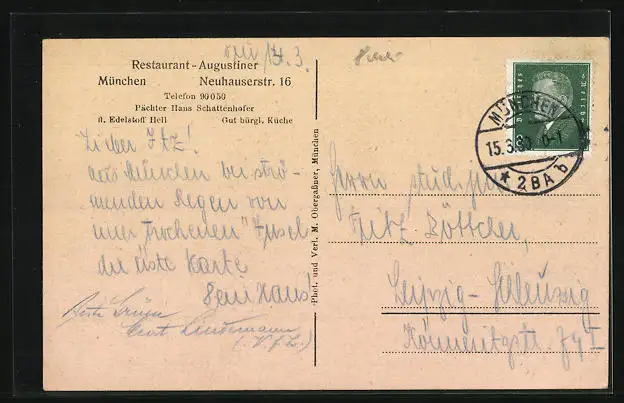 Restaurant-Augustiner
München Neuhauserstr. 16
Telefon 90050
Pächter Hans Schattenhofer
ff. Edelstoff Hell Gut bürgl. Küche
14. 3.
Lieber Itz!
aus München bei strö-
menden Regen von
einer trockenen "Insel
die erste Karte
Dein Hans
Beste Grüsse
Phot. und Verl. M. Obergaßner, München
Deutsches Reich
MÜNCHEN
15.3.
* 2 BA b
Herrn stud. jur.
Fritz Böttcher,
Leipzig-